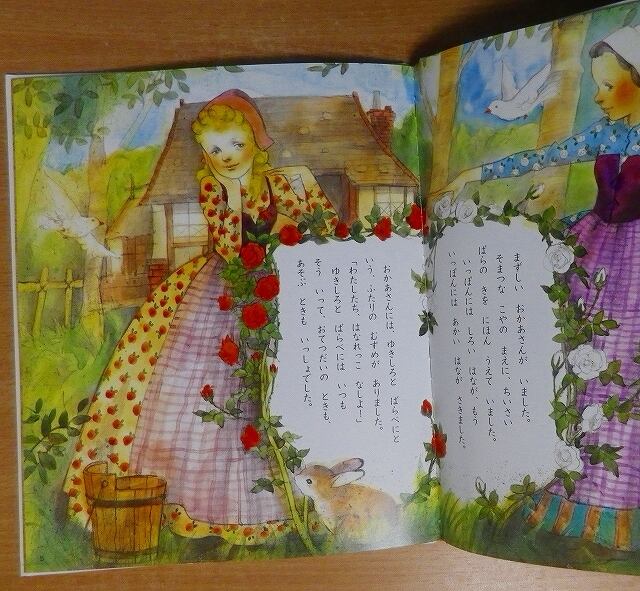 まずしい おかあさんが いました。
そまつな こやの まえに、ちいさい
ばらの きを にほん うえて いました。
いっぽんには しろい はなが、もう
いっぽんには あかい はなが さきました。
おかあさんには、ゆきしろと ばらべにと
いう、ふたりの むすめが ありました。
「わたしたち、はなれっこ なしよ！」
ゆきしろと ばらべには いつも
そう いって、おてつだいの ときも、
あそぶ ときも いっしょでした。